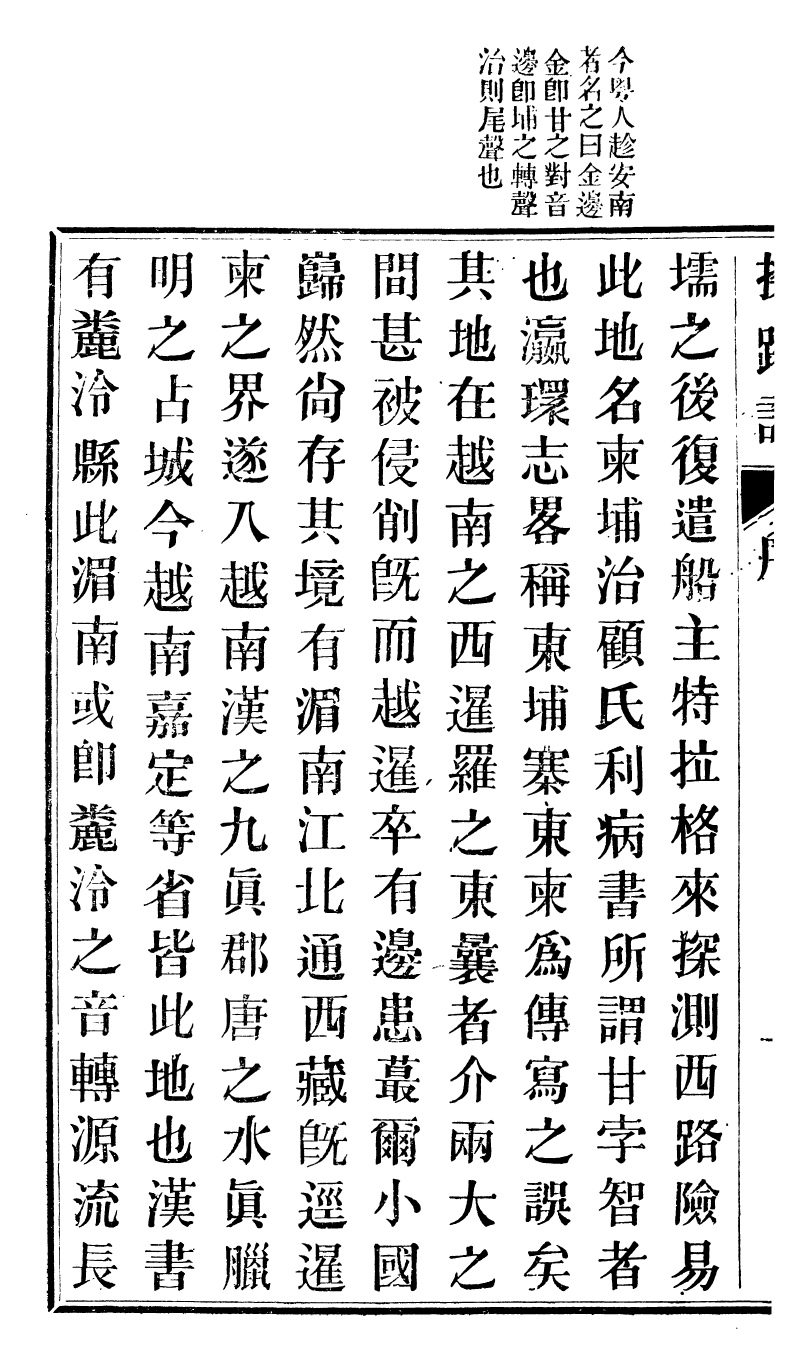 今粤人趁安南
者名之曰金邊
金卽甘之對音
邊卽埔之轉聲
治則尾聲也
探路記
序
壖之後復遣船主特拉格來探測西路險易
此地名柬埔治顧氏利病書所謂甘孛智者
也瀛環志畧稱東埔寨東柬爲傳寫之誤矣
其地在越南之西暹羅之東曩者介兩大之
間甚被侵削旣而越暹卒有邊患蕞爾小國
巋然尙存其境有湄南江北通西藏旣逕暹
柬之界遂入越南漢之九眞郡唐之水眞臘
明之占城今越南嘉定等省皆此地也漢書
有麊泠縣此湄南或卽麊泠之音轉源流長